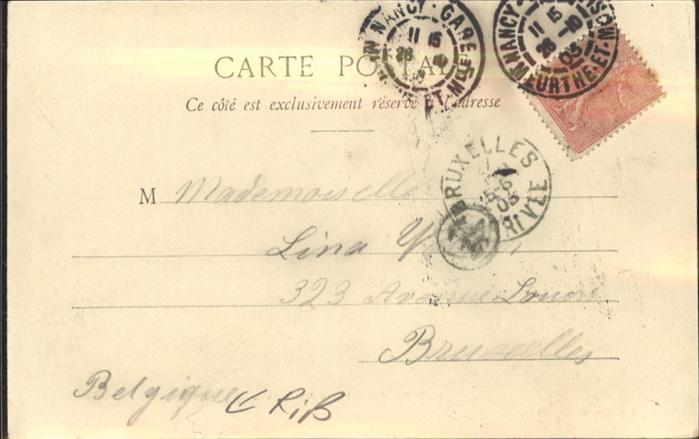 CARTE POSTALE
Ce côté est exclusivement réservé à l'adresse
NANCY-GARE
11 15
26 -10
03
NANCY-
11 15
26 -10
03
MEURTHE-ET-M
BRUXELLES
5-6
03
ARRIVÉE
M Mademoiselle
Lina
323 Avenue Louise
Bruxelles
Belgique